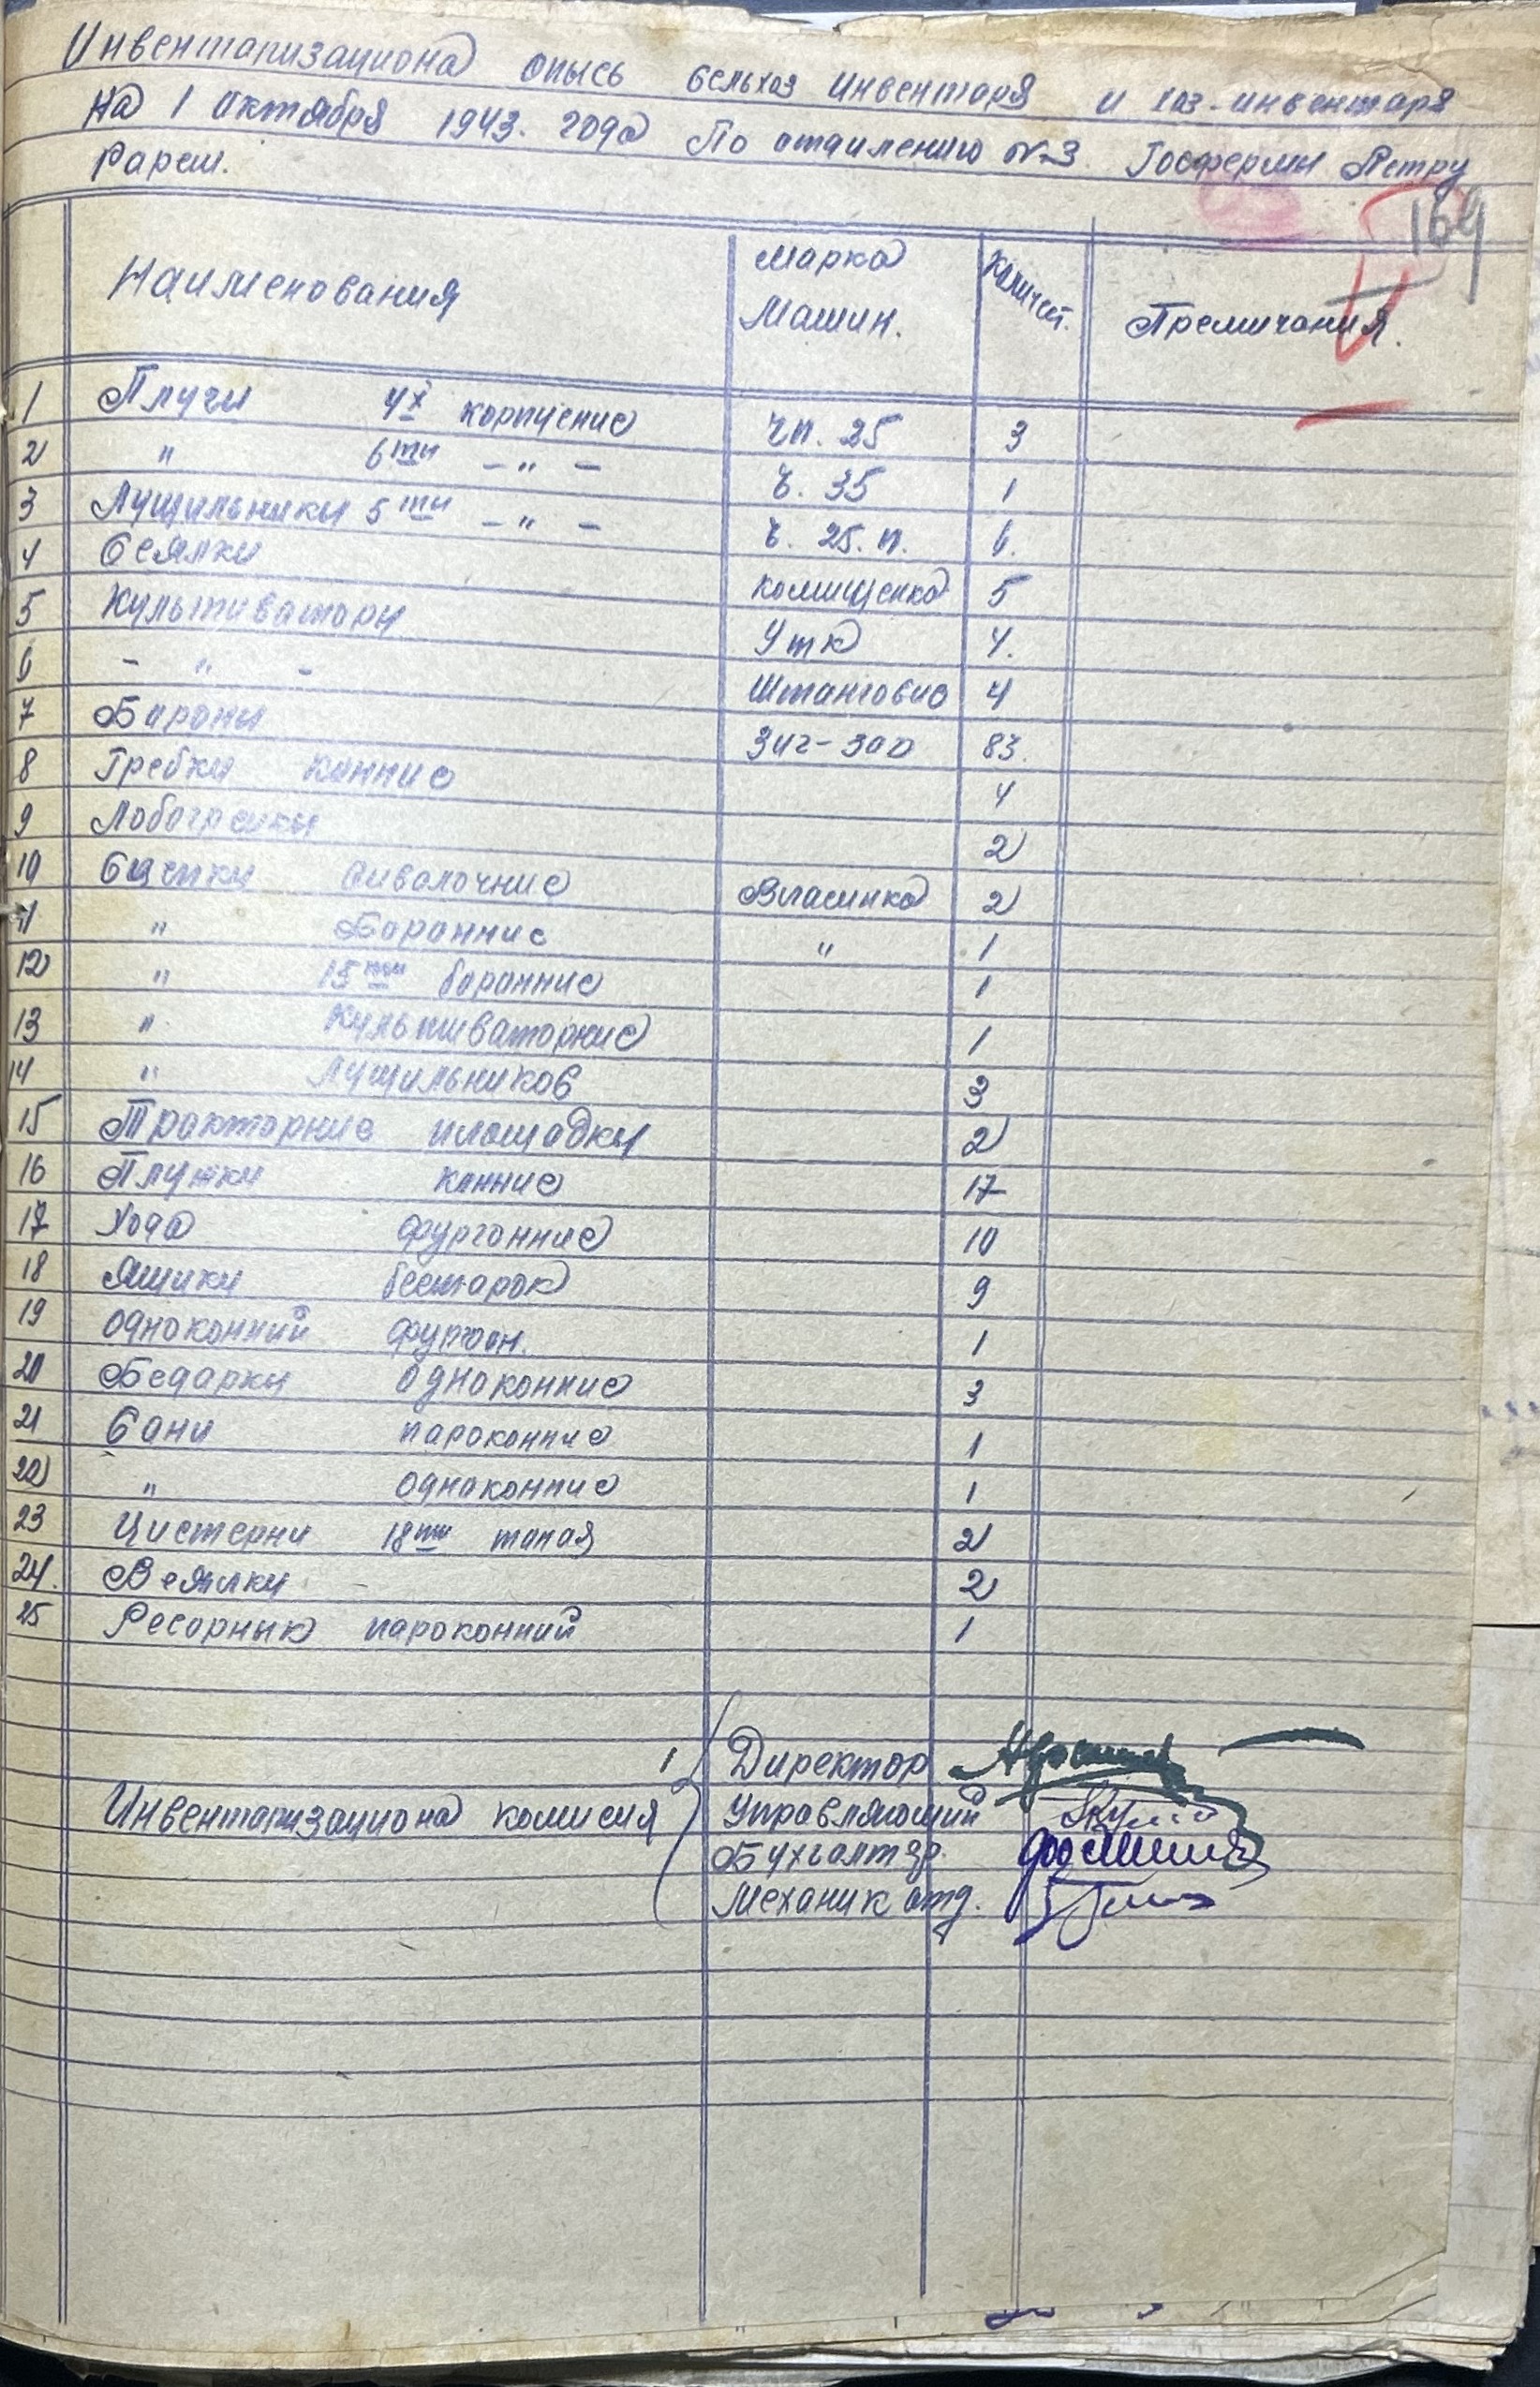 Инвентаризациона опысь сельхоз инвентаря и хоз-инвентаря
на 1 октября 1943. года По отделению №3 Госфермы Петру
Рареш.
169
Наименования Марка Машин. Количест. Премичания.
1 Плуги 4х корпусние Чп. 25 3
2 " 6ти -"- Ч. 35 1
3 Лущильники 5ти -"- Ч. 25. п. 6.
4 Сеялки 5
5 Культиватори Утк 4.
6 - " - Штанговие 4
7 Барони Зиг-заг 83.
8 Гребки конние 4
9 Лобогрейки 2
10 Сцепки 2
11 " Боронние " 1
12 " 15ти боронние 1
13 " Культиваторние 1
14 " Лущильников 3
15 Тракторние площадки 2
16 Плужки конние 17
17 Хода фургонние 10
18 Ящики бестарок 9
19 Одноконний фургон. 1
20 Бедарки одноконние 3
21 Сани пароконние 1
22 " одноконние 1
23 Цистерни 18ти 2
24. Веялки 2
25 Ресорнык пароконний 1
Директор
Инвентаризациона комисия Управляющий
Бухгалтер.
Механик отд.